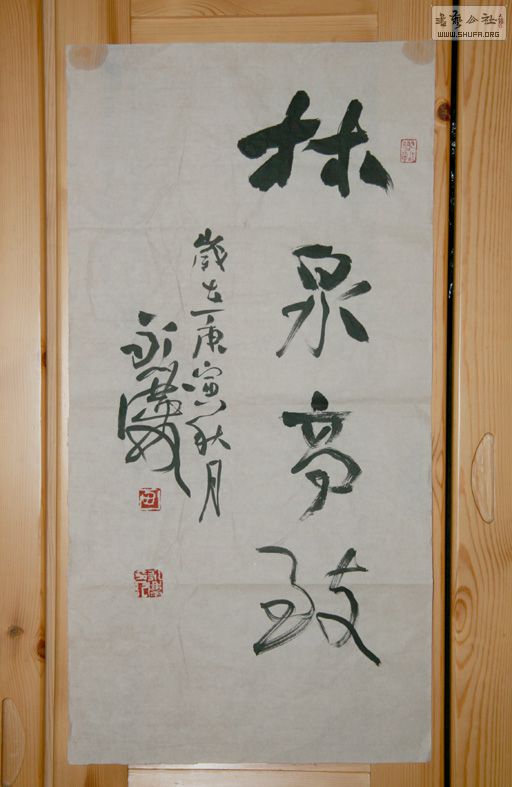 書藝公社
WWW.SHUFA.ORG
林泉高致
歲在庚寅秋月